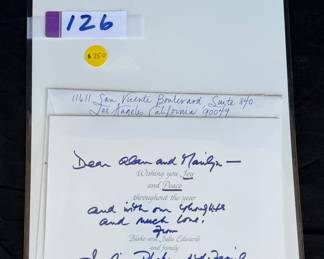 126
$250
11611 San Vicente Boulevard, Suite 840
Los Angeles California 90049
Dear Alan and Marilyn—
Wishing you Joy
and Peace
throughout the year
and with our thoughts
and much love,
from
Blake and Julie Edwards
and family